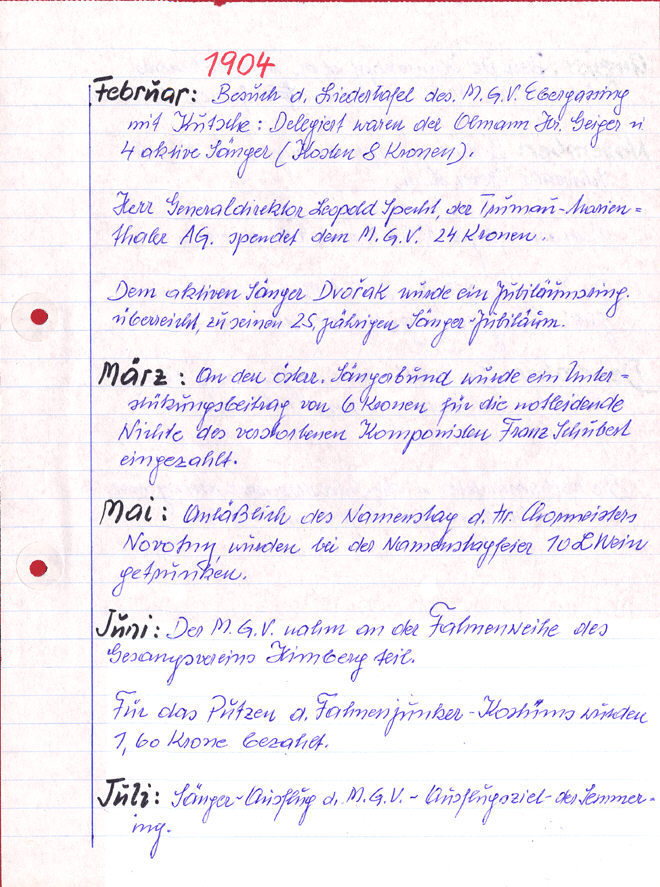 1904
Februar: Besuch d. Liedertafel des M.G.V. Ebergassing
mit Kutsche: Delegiert waren der Obmann Hr. Geiger u
4 aktive Sänger (Kosten 8 Kronen).
Herr Generaldirektor Leopold Specht, der Trumau-Marien=
thaler AG. spendet dem M.G.V. 24 Kronen.
Dem aktiven Sänger Dvořak wurde ein Jubiläumsring.
überreicht, zu seinen 25, jährigen Sänger-Jubiläum.
März: An den österr. Sängerbund wurde ein Unter=
stützungsbeitrag von 6 Kronen für die notleidende
Nichte des verstorbenen Komponisten Franz Schubert
eingezahlt.
Mai: Anläßlich des Namenstag d. Hr. Chormeisters
Novotny, wurden bei der Namenstagfeier 10 L Wein
getrunken.
Juni: Der M.G.V. nahm an der Fahnenweihe des
Gesangsvereins Himberg teil.
Für das Putzen d. Fahnenjunker-Kostüms wurden
1,60 Krone bezahlt.
Juli: Sänger-Ausflug d. M.G.V. - Ausflugsziel-der Semmer-
ing.